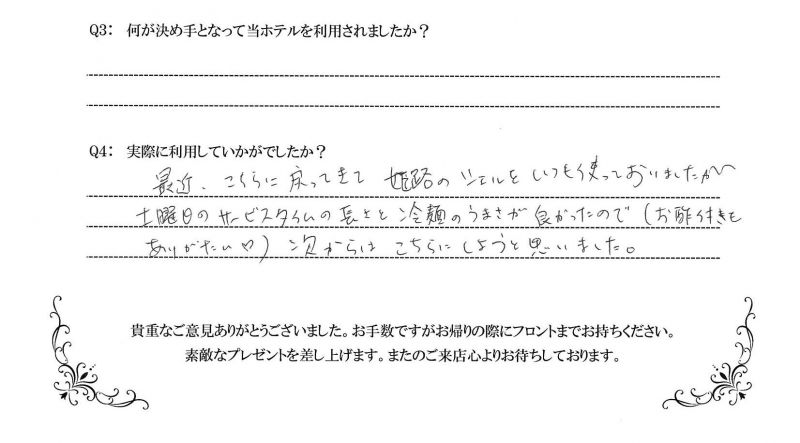 Q3: 何が決め手となって当ホテルを利用されましたか？
Q4: 実際に利用していかがでしたか？
最近、こちらに戻ってきて 姫路のシエルをいつも使っておいましたが〜
土曜日のサービスタイムの長さと冷麺のうまさが良かったので（お酢付きも
ありがたい♡）次からは こちらにしようと思いました。
貴重なご意見ありがとうございました。お手数ですがお帰りの際にフロントまでお持ちください。
素敵なプレゼントを差し上げます。またのご来店心よりお待ちしております。